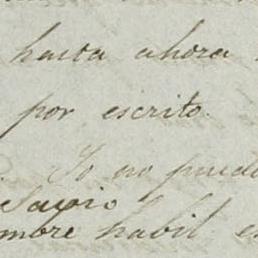 hasta ahora
por escrito.
Yo no puedo
Savio
mbre habil e